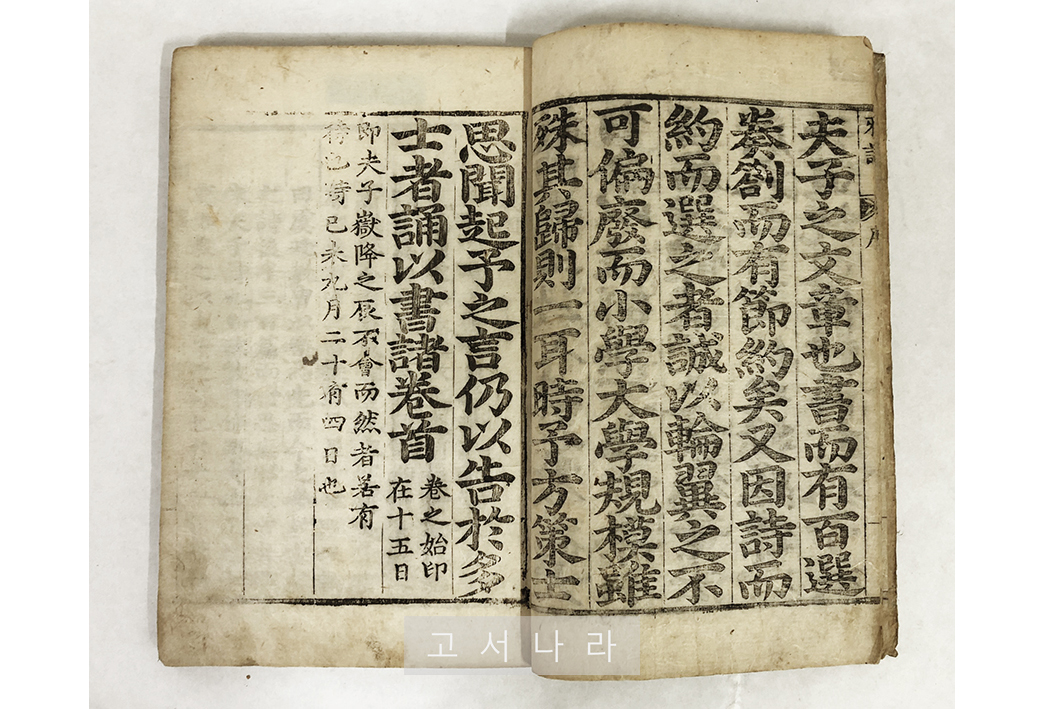 夫子之文章也書而有百選
奏劄而有節約矣又因詩而
約而選之者誠以輪翼之不
可偏廢而小學大學規模雖
殊其歸則一耳時予方策士
思聞起予之言仍以告於多
士者誦以書諸卷首
卷之始印
在十五日
即夫子嶽降之辰不會而然者若有
待也時己未九月二十有四日也
고서나라